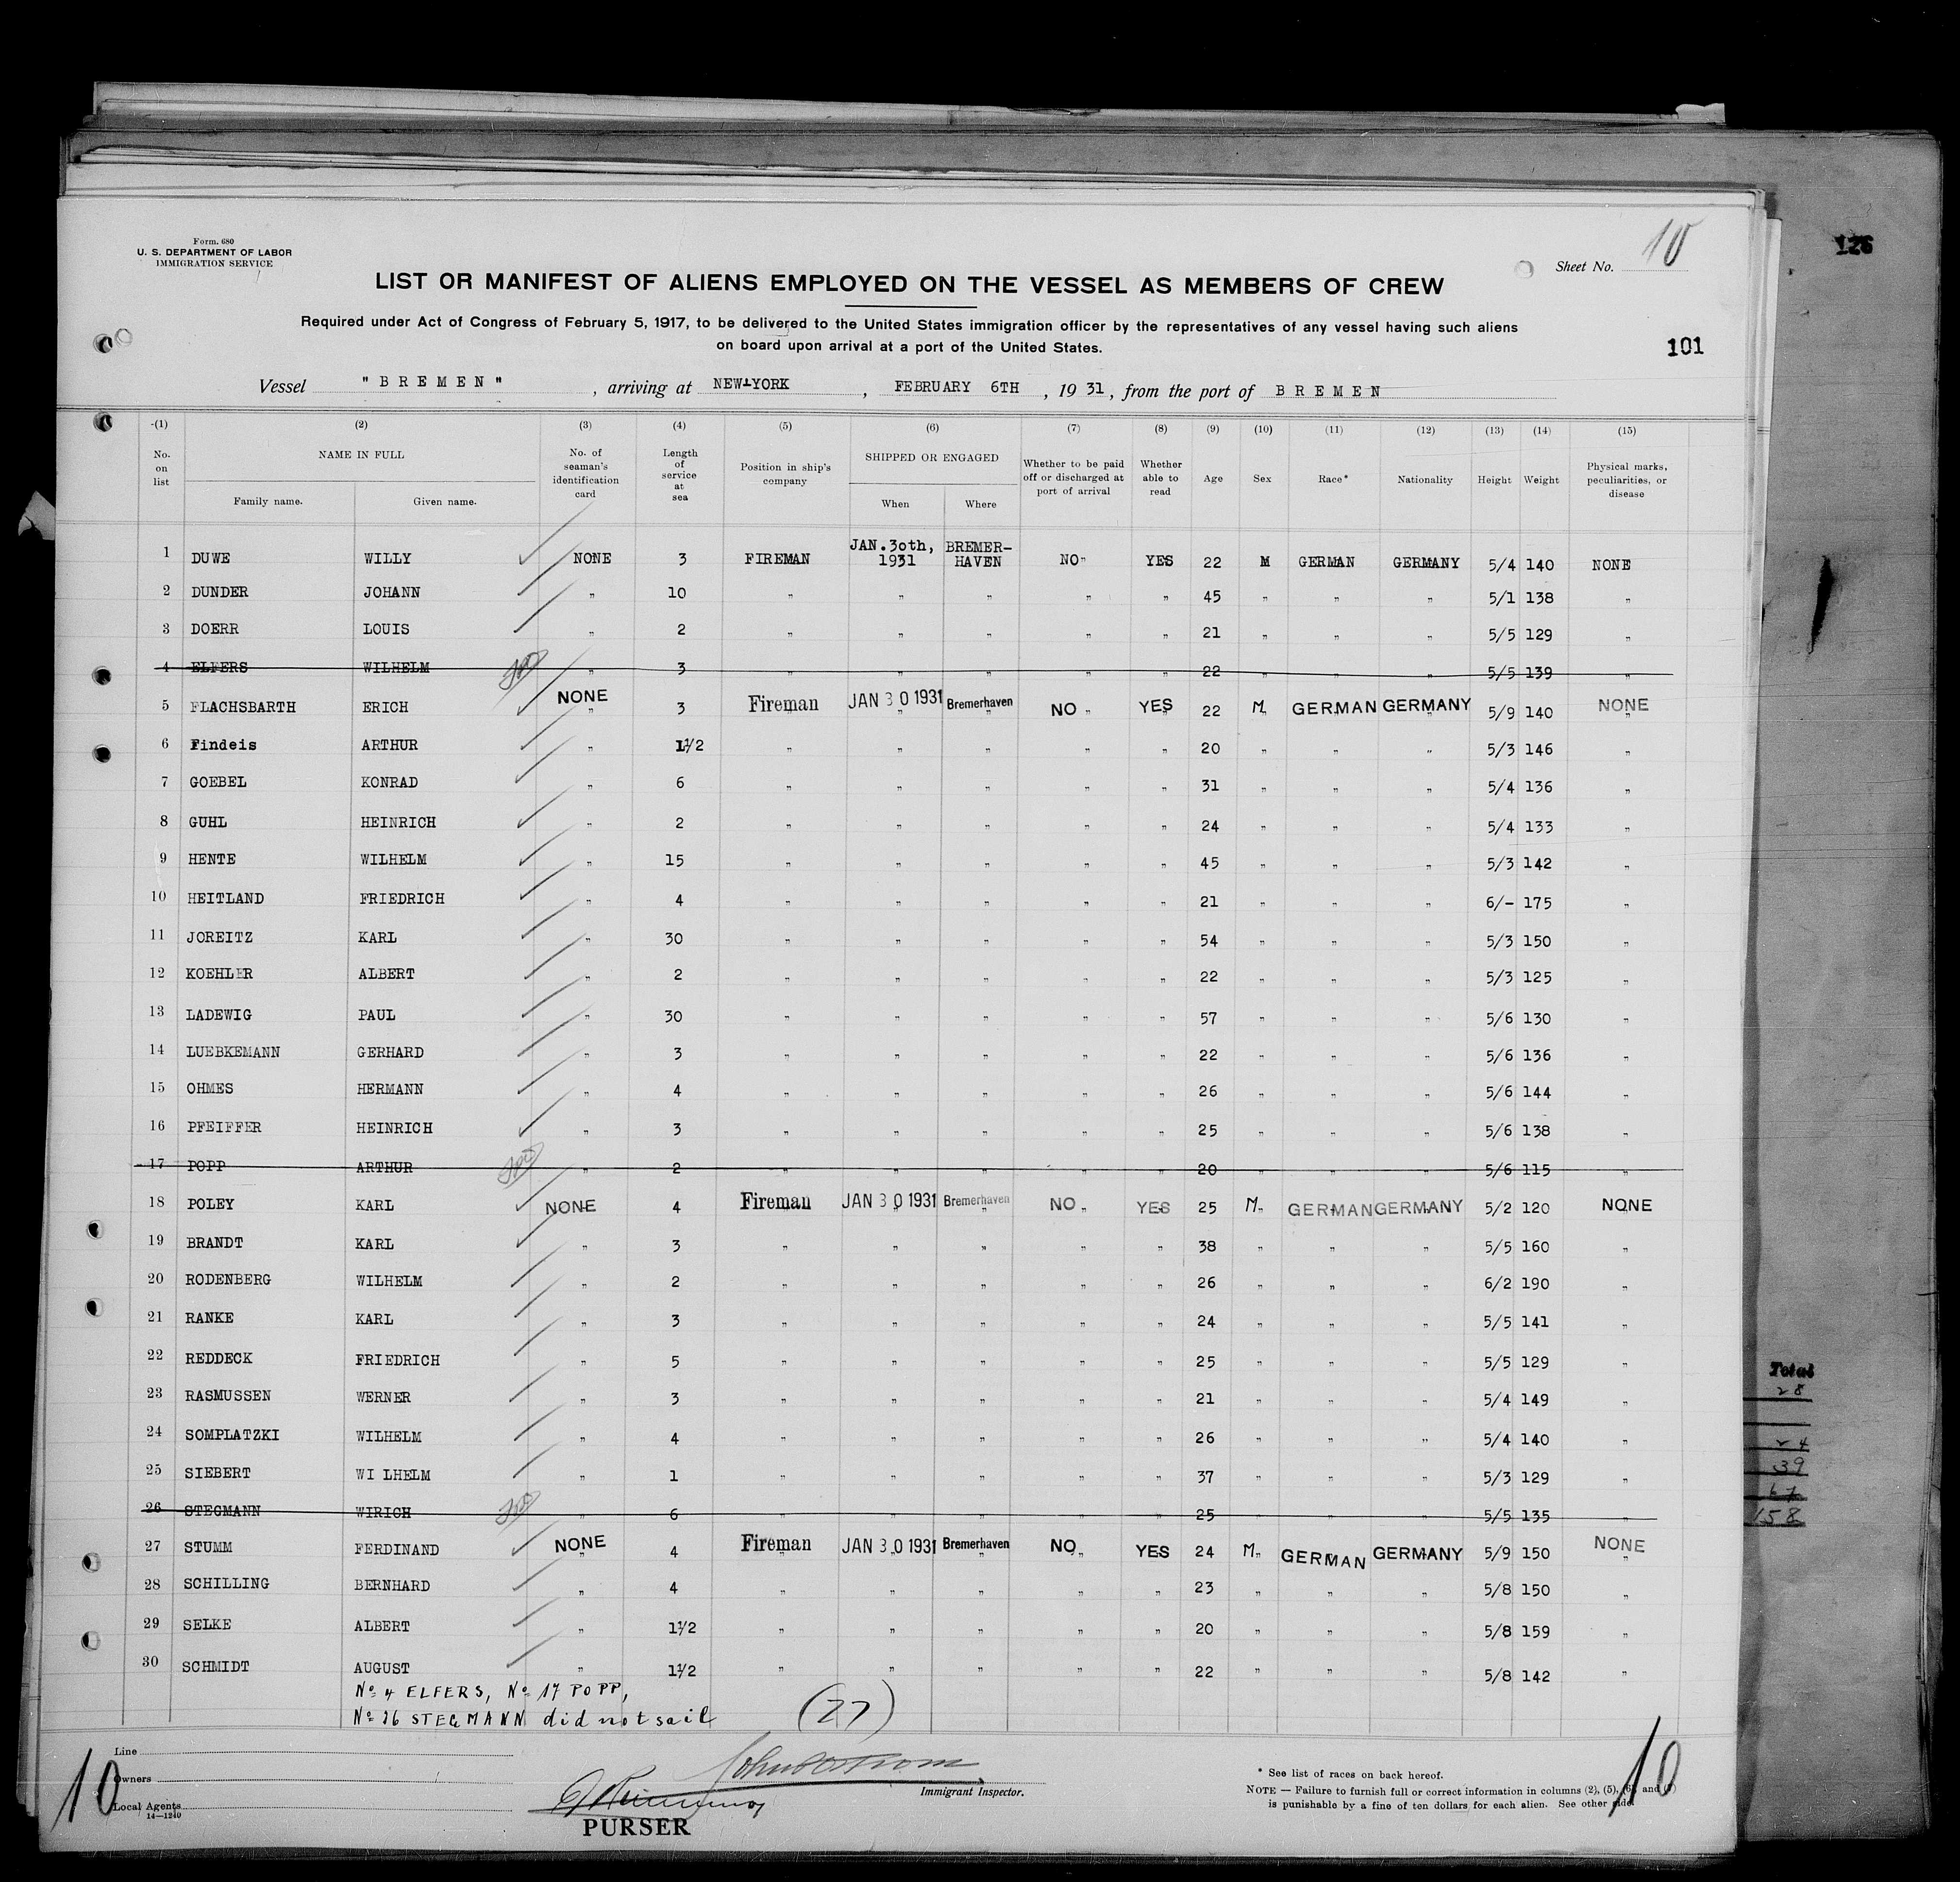 Form. 680
U. S. DEPARTMENT OF LABOR
IMMIGRATION SERVICE
10
126
Sheet No.
LIST OR MANIFEST OF ALIENS EMPLOYED ON THE VESSEL AS MEMBERS OF CREW
Required under Act of Congress of February 5, 1917, to be delivered to the United States immigration officer by the representatives of any vessel having such aliens
on board upon arrival at a port of the United States.
101
Vessel "BREMEN", arriving at NEW-YORK, FEBRUARY 6TH, 1931, from the port of BREMEN
(1) (2) (3) (4) (5) (6) (7) (8) (9) (10) (11) (12) (13) (14) (15)
No. on list NAME IN FULL Family name. Given name. No. of seaman's identification card Length of service at sea Position in ship's company SHIPPED OR ENGAGED When Where Whether to be paid off or discharged at port of arrival Whether able to read Age Sex Race* Nationality Height Weight Physical marks, peculiarities, or disease
1 DUWE WILLY NONE 3 FIREMAN JAN.30th, 1931 BREMER-HAVEN NO YES 22 M GERMAN GERMANY 5/4 140 NONE
2 DUNDER JOHANN " 10 " " " " " 45 " " " 5/1 138 "
3 DOERR LOUIS " 2 " " " " " 21 " " " 5/5 129 "
4 ELFERS WILHELM " 3 " " " " " 22 " " " 5/5 139 "
5 FLACHSBARTH ERICH NONE " 3 Fireman " JAN 30 1931 " Bremerhaven " NO " YES " 22 M " GERMAN " GERMANY " 5/9 140 NONE "
6 Findeis ARTHUR " 1 1/2 " " " " " 20 " " " 5/3 146 "
7 GOEBEL KONRAD " 6 " " " " " 31 " " " 5/4 136 "
8 GUHL HEINRICH " 2 " " " " " 24 " " " 5/4 133 "
9 HENTE WILHELM " 15 " " " " " 45 " " " 5/3 142 "
10 HEITLAND FRIEDRICH " 4 " " " " " 21 " " " 6/- 175 "
11 JOREITZ KARL " 30 " " " " " 54 " " " 5/3 150 "
12 KOEHLER ALBERT " 2 " " " " " 22 " " " 5/3 125 "
13 LADEWIG PAUL " 30 " " " " " 57 " " " 5/6 130 "
14 LUEBKEMANN GERHARD " 3 " " " " " 22 " " " 5/6 136 "
15 OHMES HERMANN " 4 " " " " " 26 " " " 5/6 144 "
16 PFEIFFER HEINRICH " 3 " " " " " 25 " " " 5/6 138 "
17 POPP ARTHUR " 2 " " " " " 20 " " " 5/6 115 "
18 POLEY KARL NONE " 4 Fireman " JAN 30 1931 " Bremerhaven " NO " YES " 25 M " GERMAN " GERMANY " 5/2 120 NONE "
19 BRANDT KARL " 3 " " " " " 38 " " " 5/5 160 "
20 RODENBERG WILHELM " 2 " " " " " 26 " " " 6/2 190 "
21 RANKE KARL " 3 " " " " " 24 " " " 5/5 141 "
22 REDDECK FRIEDRICH " 5 " " " " " 25 " " " 5/5 129 "
23 RASMUSSEN WERNER " 3 " " " " " 21 " " " 5/4 149 "
24 SOMPLATZKI WILHELM " 4 " " " " " 26 " " " 5/4 140 "
25 SIEBERT WI LHELM " 1 " " " " " 37 " " " 5/3 129 "
26 STEGMANN WIRICH " 6 " " " " " 25 " " " 5/5 135 "
27 STUMM FERDINAND NONE " 4 Fireman " JAN 30 1931 " Bremerhaven " NO " YES 24 M " GERMAN GERMANY " 5/9 150 NONE "
28 SCHILLING BERNHARD " 4 " " " " " 23 " " " 5/8 150 "
29 SELKE ALBERT " 1 1/2 " " " " " 20 " " " 5/8 159 "
30 SCHMIDT AUGUST " 1 1/2 " " " " " 22 " " " 5/8 142 "
No 4 ELFERS, No 17 POPP,
No 26 STEGMANN did not sail (27)
Total
28
24
39
67
158
Line
Owners
Local Agents
14—1240
10
PURSER
Immigrant Inspector.
* See list of races on back hereof.
NOTE — Failure to furnish full or correct information in columns (2), (5), (6), and (7)
is punishable by a fine of ten dollars for each alien. See other side.
10